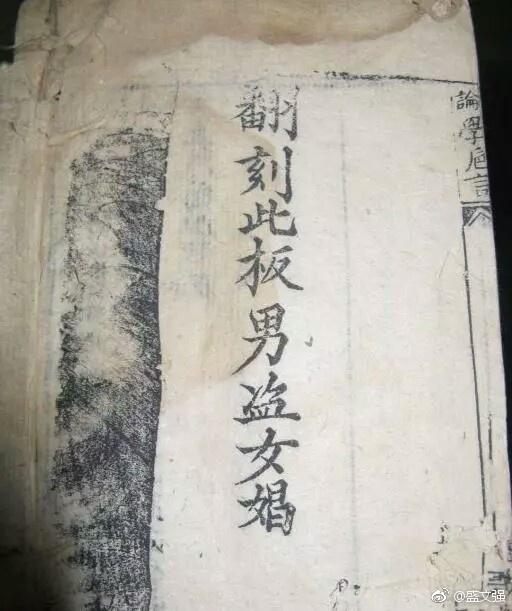 論學卮言
翻刻此板男盗女娼
@盛文强